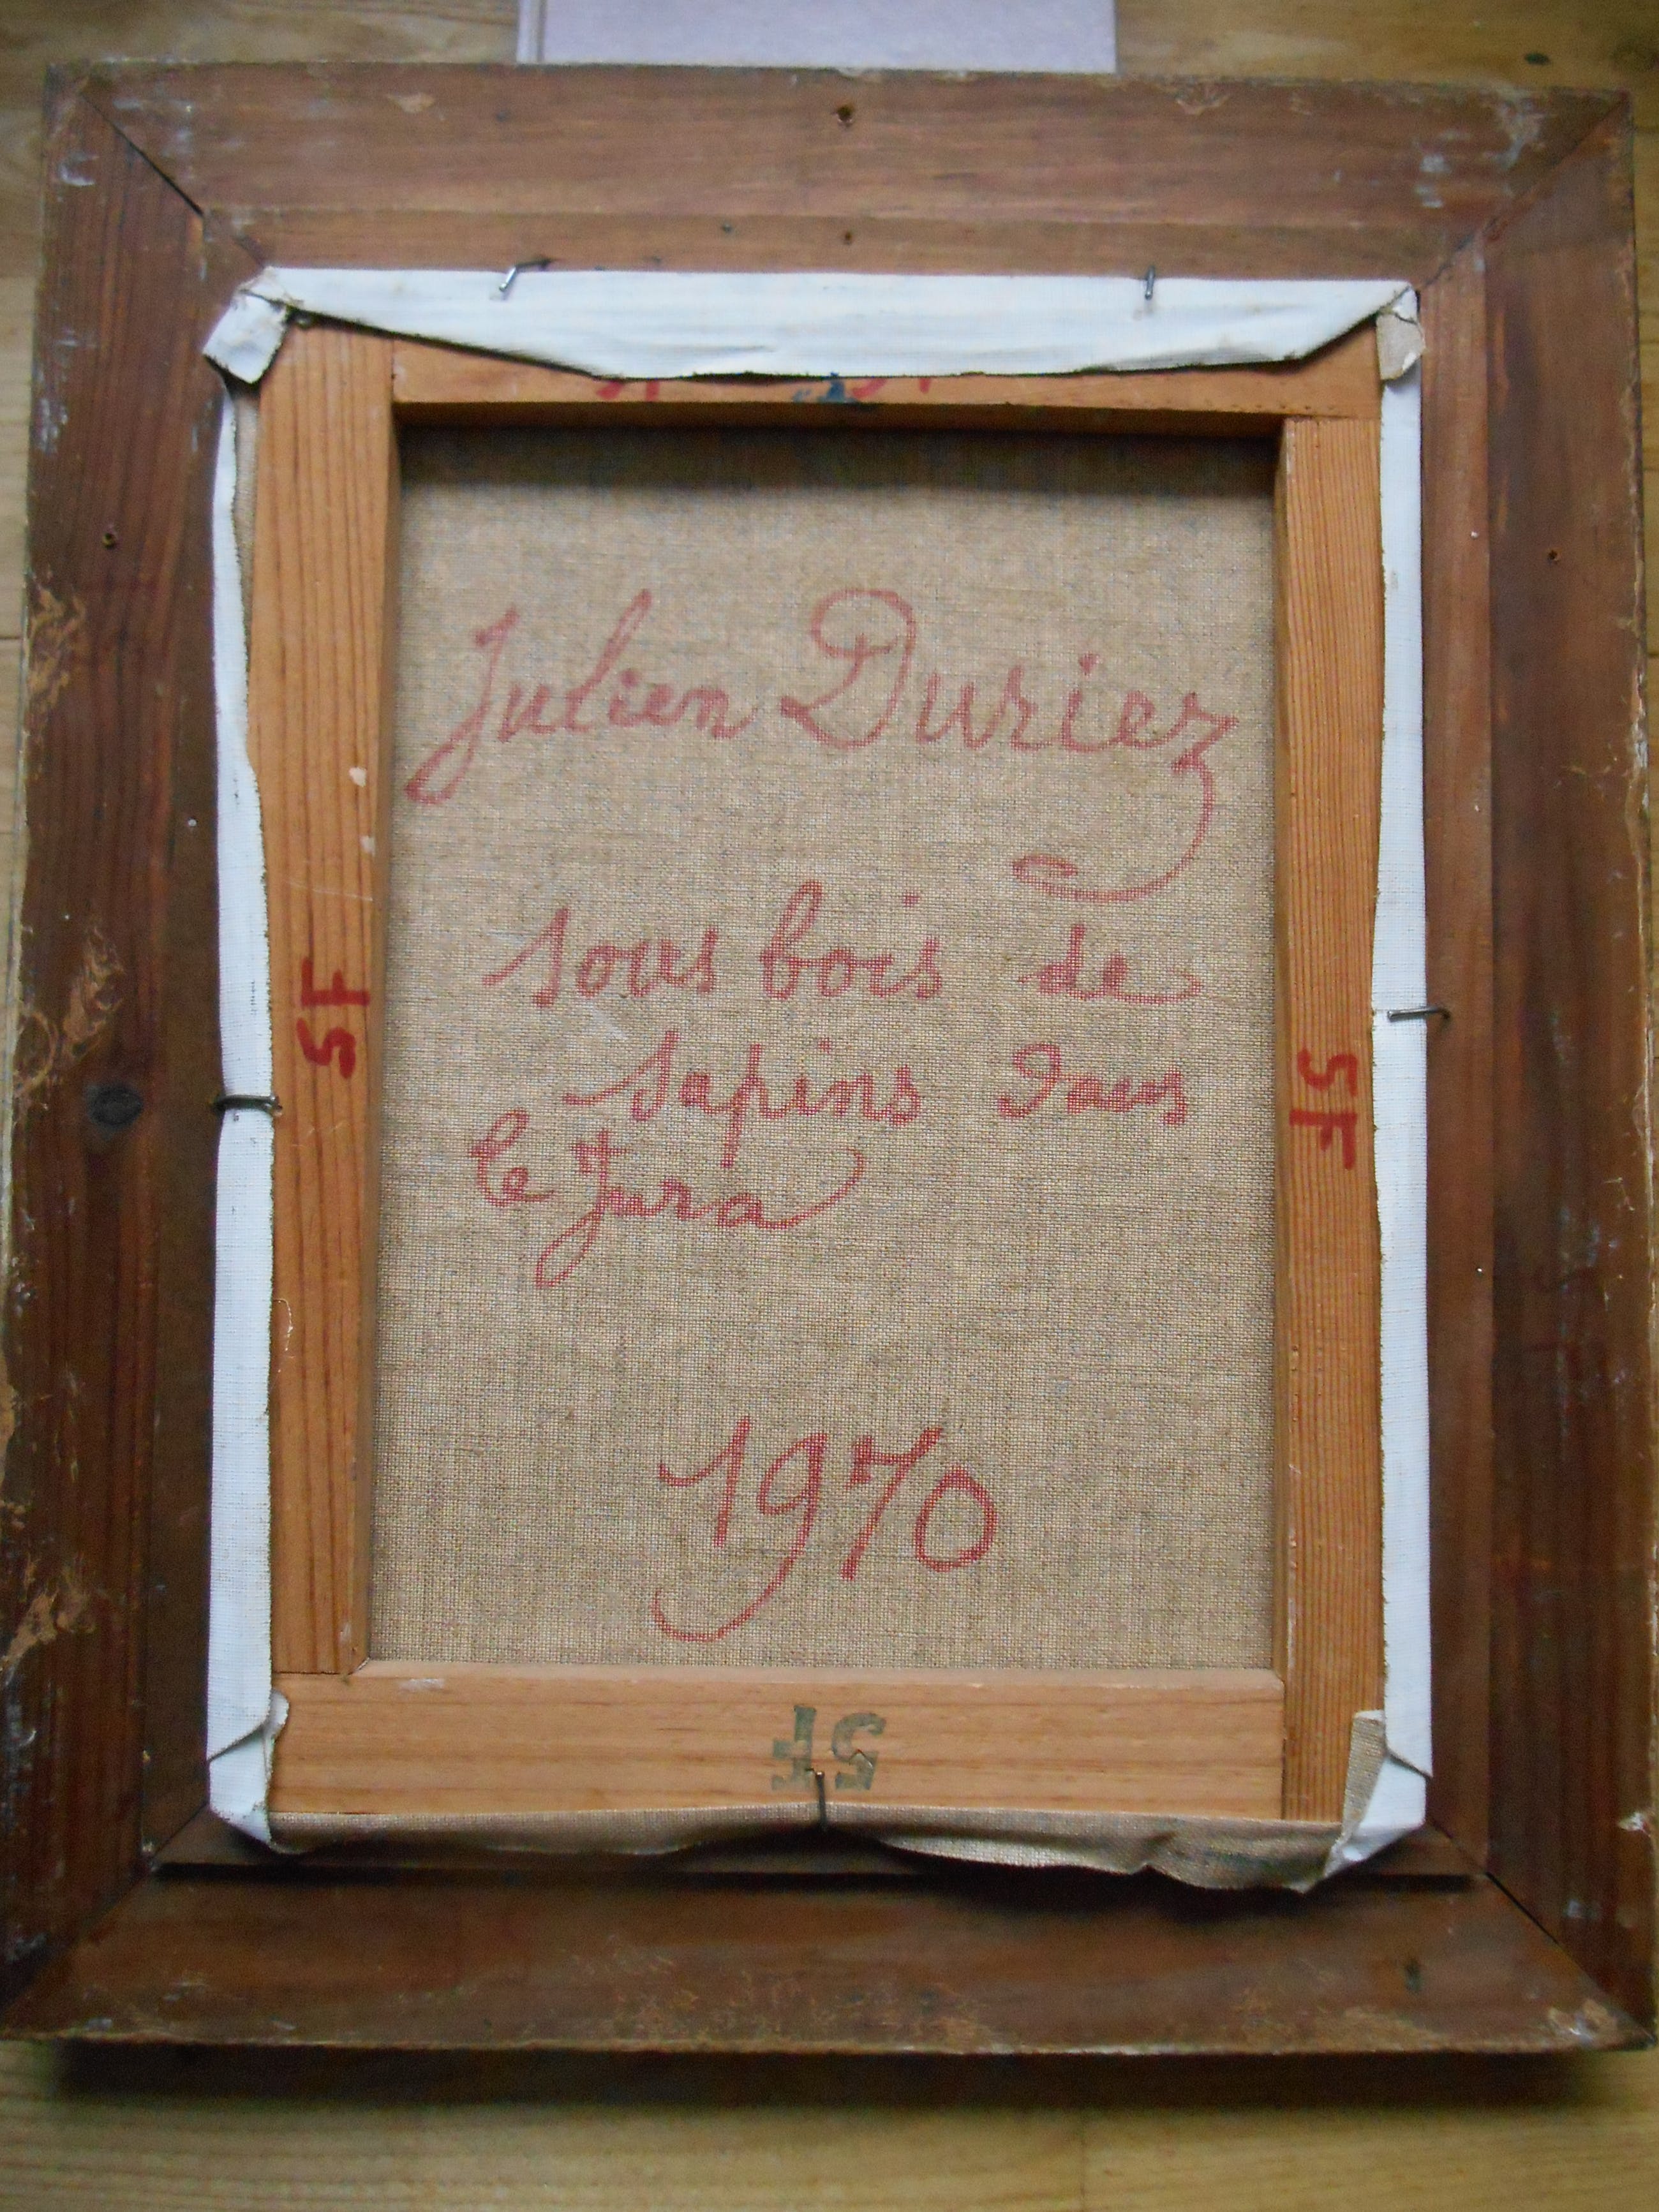 Julien Duriez
sous bois de
sapins dans
le Jura
1970
5F
5F
5F